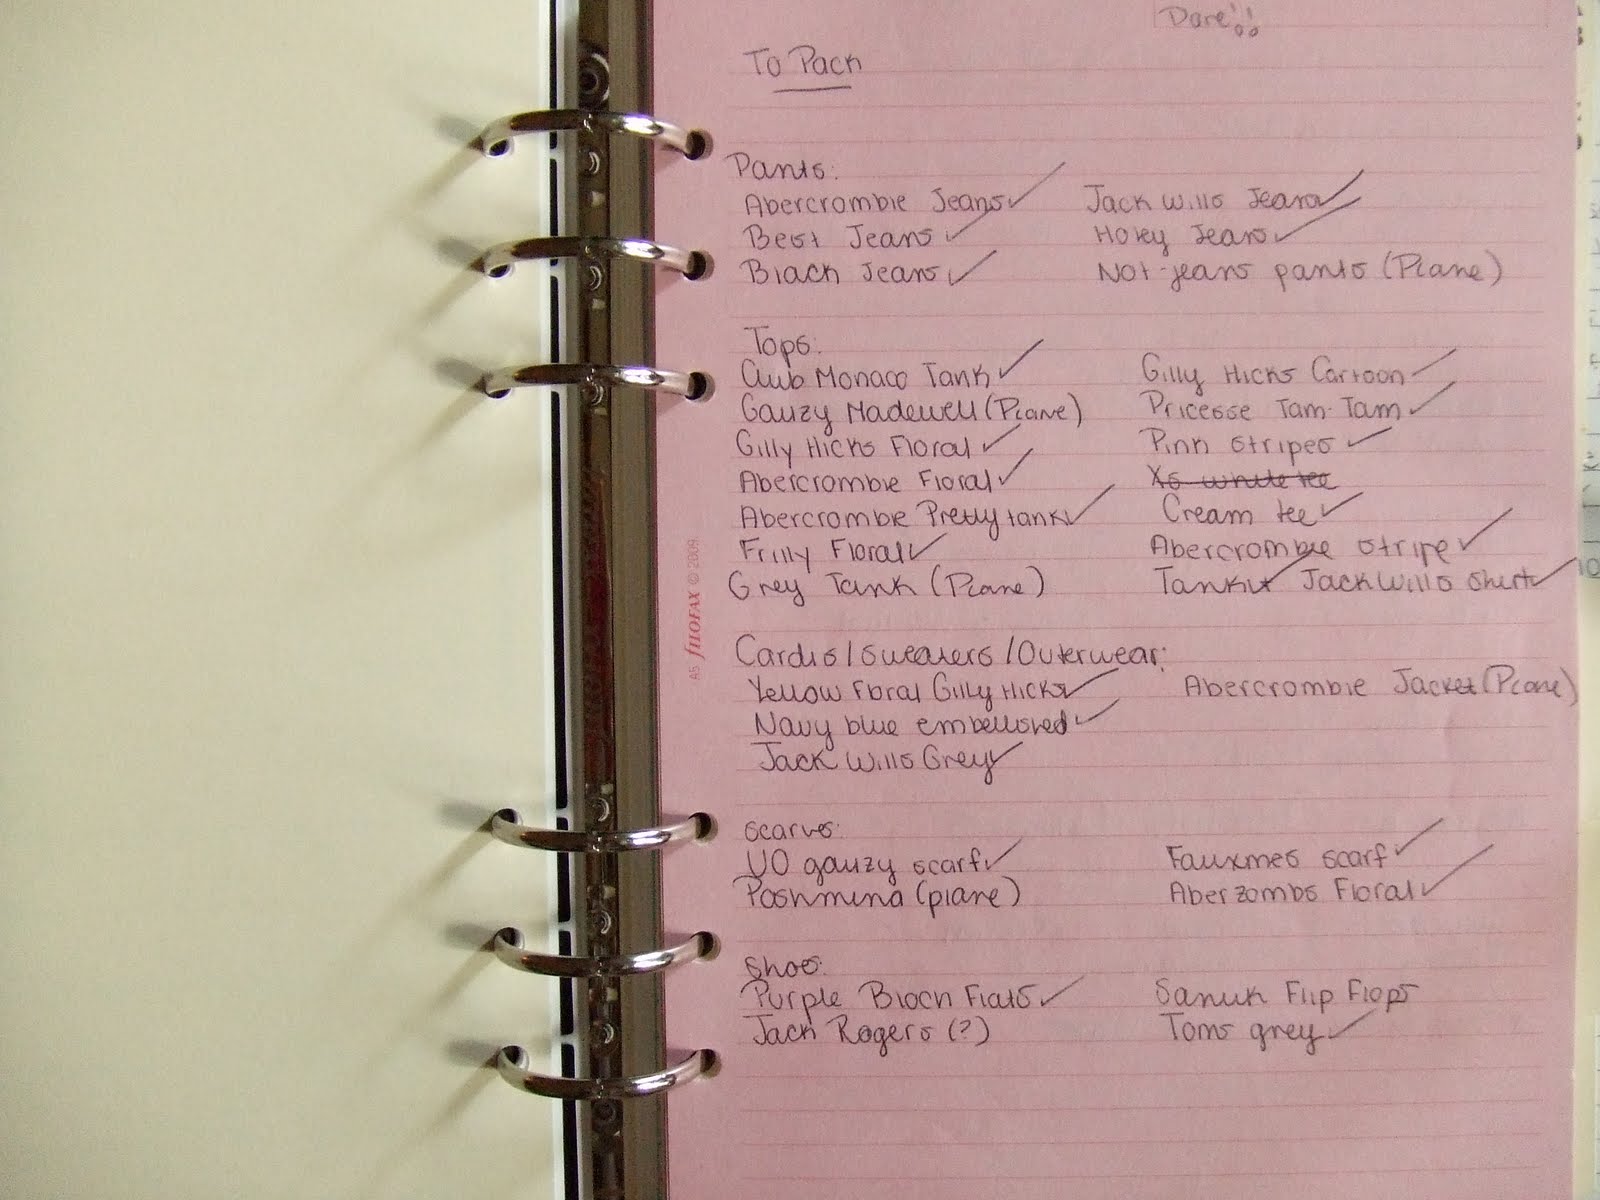 Date!!
To Pack
Pants:
Abercrombie Jeans✓ Jack Wills Jeans✓
Best Jeans ✓ Holey Jeans✓
Black Jeans ✓ Not-jeans pants (Plane)
Tops:
Club Monaco Tank ✓ Gilly Hicks Cartoon ✓
Gauzy Madewell (Plane) Pricesse Tam-Tam ✓
Gilly Hicks Floral ✓ Pink stripes ✓
Abercrombie Floral ✓ Xs white tee
Abercrombie Pretty tank✓ Cream tee✓
Frilly Floral✓ Abercrombie stripe ✓
Grey Tank (Plane) Tank✓ Jack Wills Shirt✓
Cardis/sweaters/Outerwear:
Yellow Floral Gilly Hicks✓ Abercrombie Jacket (Plane)
Navy blue embellished ✓
Jack Wills Grey✓
Scarves:
UO gauzy scarf✓ Fauxmes scarf ✓
Pashmina (plane) Aberzombs Floral ✓
Shoes:
Purple Bloch Flats ✓ Sanuk Flip Flops
Jack Rogers (?) Toms grey ✓
A5 fILOFAX © 2009